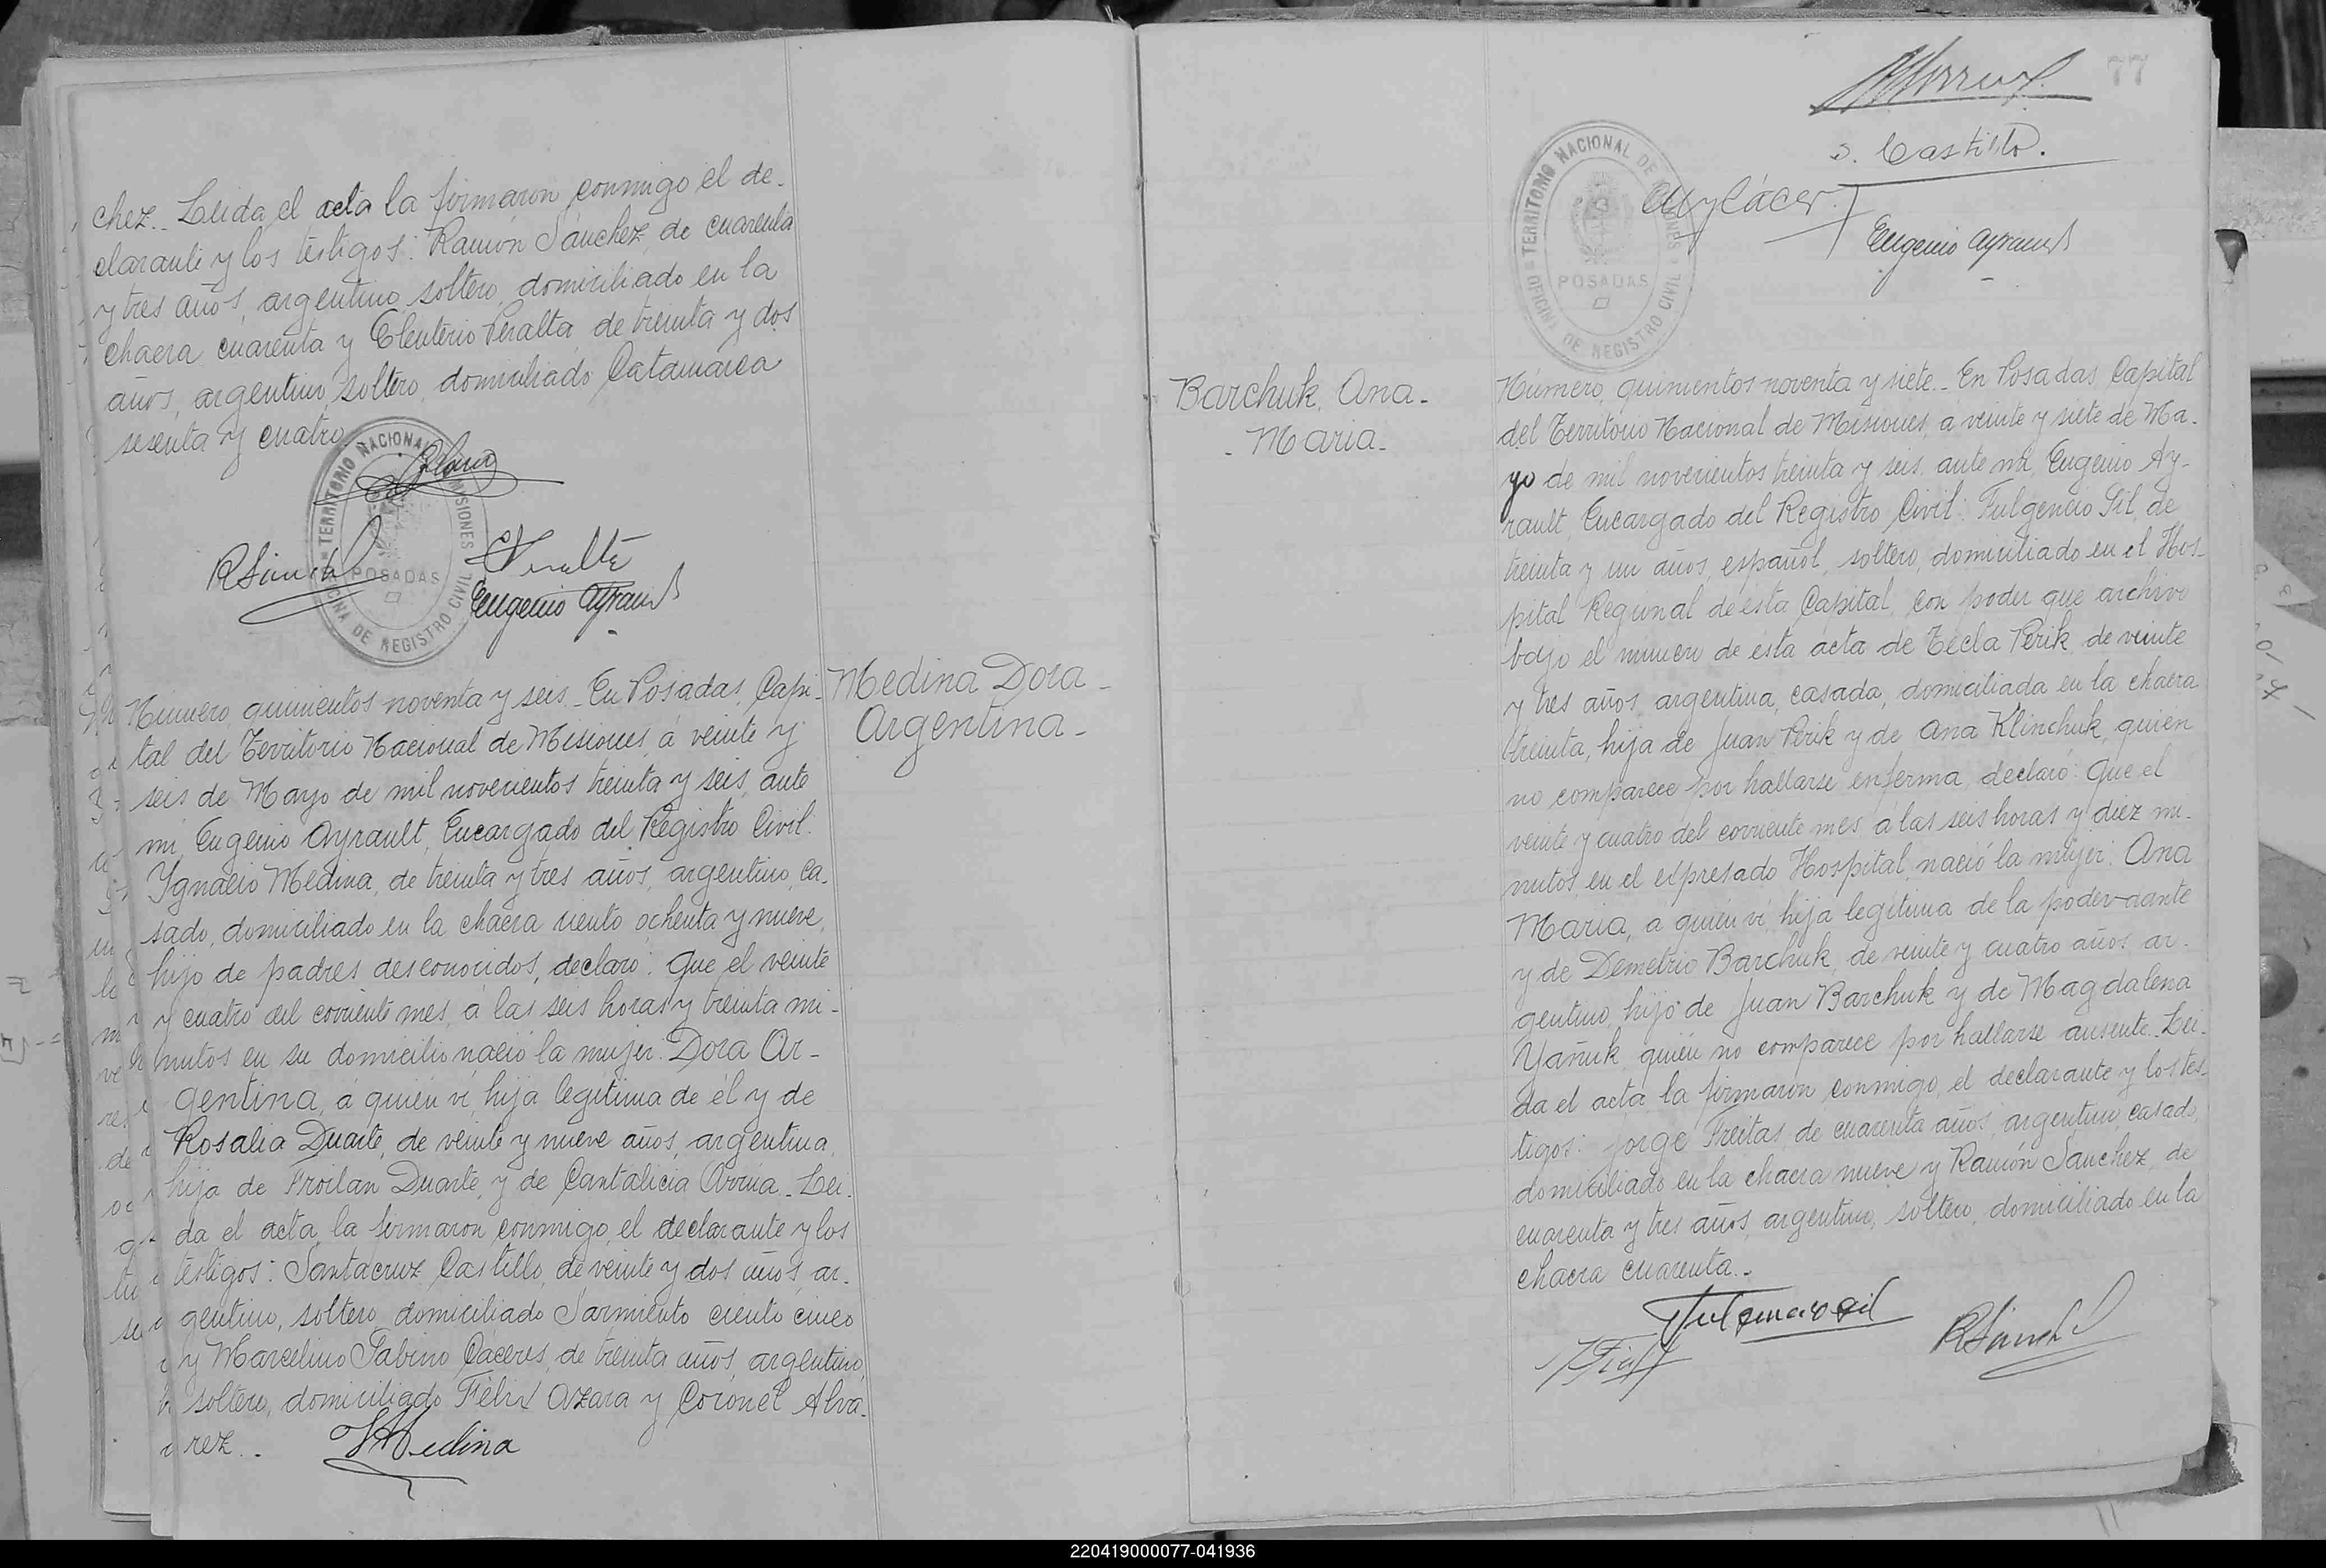 chez._ Leida el acta la firmaron conmigo el de-
clarante y los testigos: Ramón Sánchez, de cuarenta
y tres años, argentino, soltero, domiciliado en la
chacra cuarenta y Eleuterio Peralta, de treinta y dos
años, argentino, soltero, domiciliado Catamarca
sesenta y cuatro
TERRITORIO NACIONAL DE MISIONES
POSADAS
OFICINA DE REGISTRO CIVIL
RSánchez
EPeralta
Eugenio Ayrault
Número quinientos noventa y seis._ En Posadas, Capi-
tal del Territorio Nacional de Misiones, á veinte y
seis de Mayo de mil novecientos treinta y seis, ante
mí, Eugenio Ayrault, Encargado del Registro Civil:
Ygnacio Medina, de treinta y tres años, argentino, ca-
sado, domiciliado en la chacra ciento ochenta y nueve,
hijo de padres desconocidos, declaró: Que el veinte
y cuatro del corriente mes, á las seis horas y treinta mi-
nutos en su domicilio nació la mujer: Dora Ar-
gentina, á quién ví, hija legítima de él y de
Rosalia Duarte, de veinte y nueve años, argentina,
hija de Froilan Duarte, y de Cantalicia Orrua._ Lei-
da el acta, la firmaron conmigo, el declarante y los
testigos: Santacruz Castillo, de veinte y dos años, ar-
gentino, soltero, domiciliado Sarmiento ciento cinco
y Marcelino Sabino Cáceres, de treinta años, argentino,
soltero, domiciliado Félix Azara y Coronel Alva-
rez._
YMedina
Medina Dora_
Argentina_
77
S. Castillo.
TERRITORIO NACIONAL DE MISIONES
POSADAS
OFICINA DE REGISTRO CIVIL
Eugenio Ayrault
Barchuk, Ana_
_Maria_
Número, quinientos noventa y siete._ En Posadas, Capital
del Territorio Nacional de Misiones, á veinte y siete de Ma-
yo de mil novecientos treinta y seis, ante mí, Eugenio Ay-
rault, Encargado del Registro Civil: Fulgencio Gil, de
treinta y un años, español, soltero, domiciliado en el Hos-
pital Regional de esta Capital, con poder que archivo
bajo el número de esta acta de Tecla Perik, de veinte
y tres años, argentina, casada, domiciliada en la chacra
treinta, hija de Juan Perik y de Ana Klinchuk, quién
no comparece por hallarse enferma, declaró: Que el
veinte y cuatro del corriente mes, á las seis horas y diez mi-
nutos, en el expresado Hospital, nació la mujer: Ana
Maria, á quién ví, hija legítima de la poder-dante
y de Demetrio Barchuk, de veinte y cuatro años, ar-
gentino, hijo de Juan Barchuk y de Magdalena
Yañuk, quién no comparece por hallarse ausente._ Lei-
da el acta la firmaron conmigo, el declarante y los tes-
tigos: Jorge Freitas, de cuarenta años, argentino, casado,
domiciliado en la chacra nueve y Ramón Sánchez, de
cuarenta y tres años, argentino, soltero, domiciliado en la
chacra cuarenta._
Fulgencio Gil
RSánchez
220419000077-041936